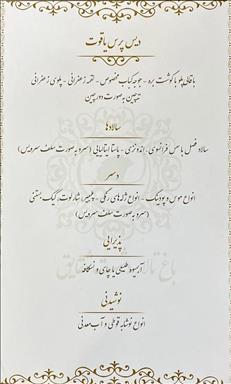 دیس پرس یاقوت
باقالی پلو با گوشت بره - جوجه کباب مخصوص - لقمه زعفرانی - پلوی زعفرانی
ته‌چین به صورت دورچین
سالادها
سالاد فصل با سس فرانسوی، اندونزی - پاستا ایتالیایی (سرو به صورت سلف سرویس)
دسر
انواع موس و پودینگ - انواع ژله‌های رنگی - پلمبیر، شارلوت، کیک بستنی
(سرو به صورت سلف سرویس)
پذیرایی
آبمیوه طبیعی یا چای و نسکافه
نوشیدنی
انواع نوشابه قوطی و آب معدنی